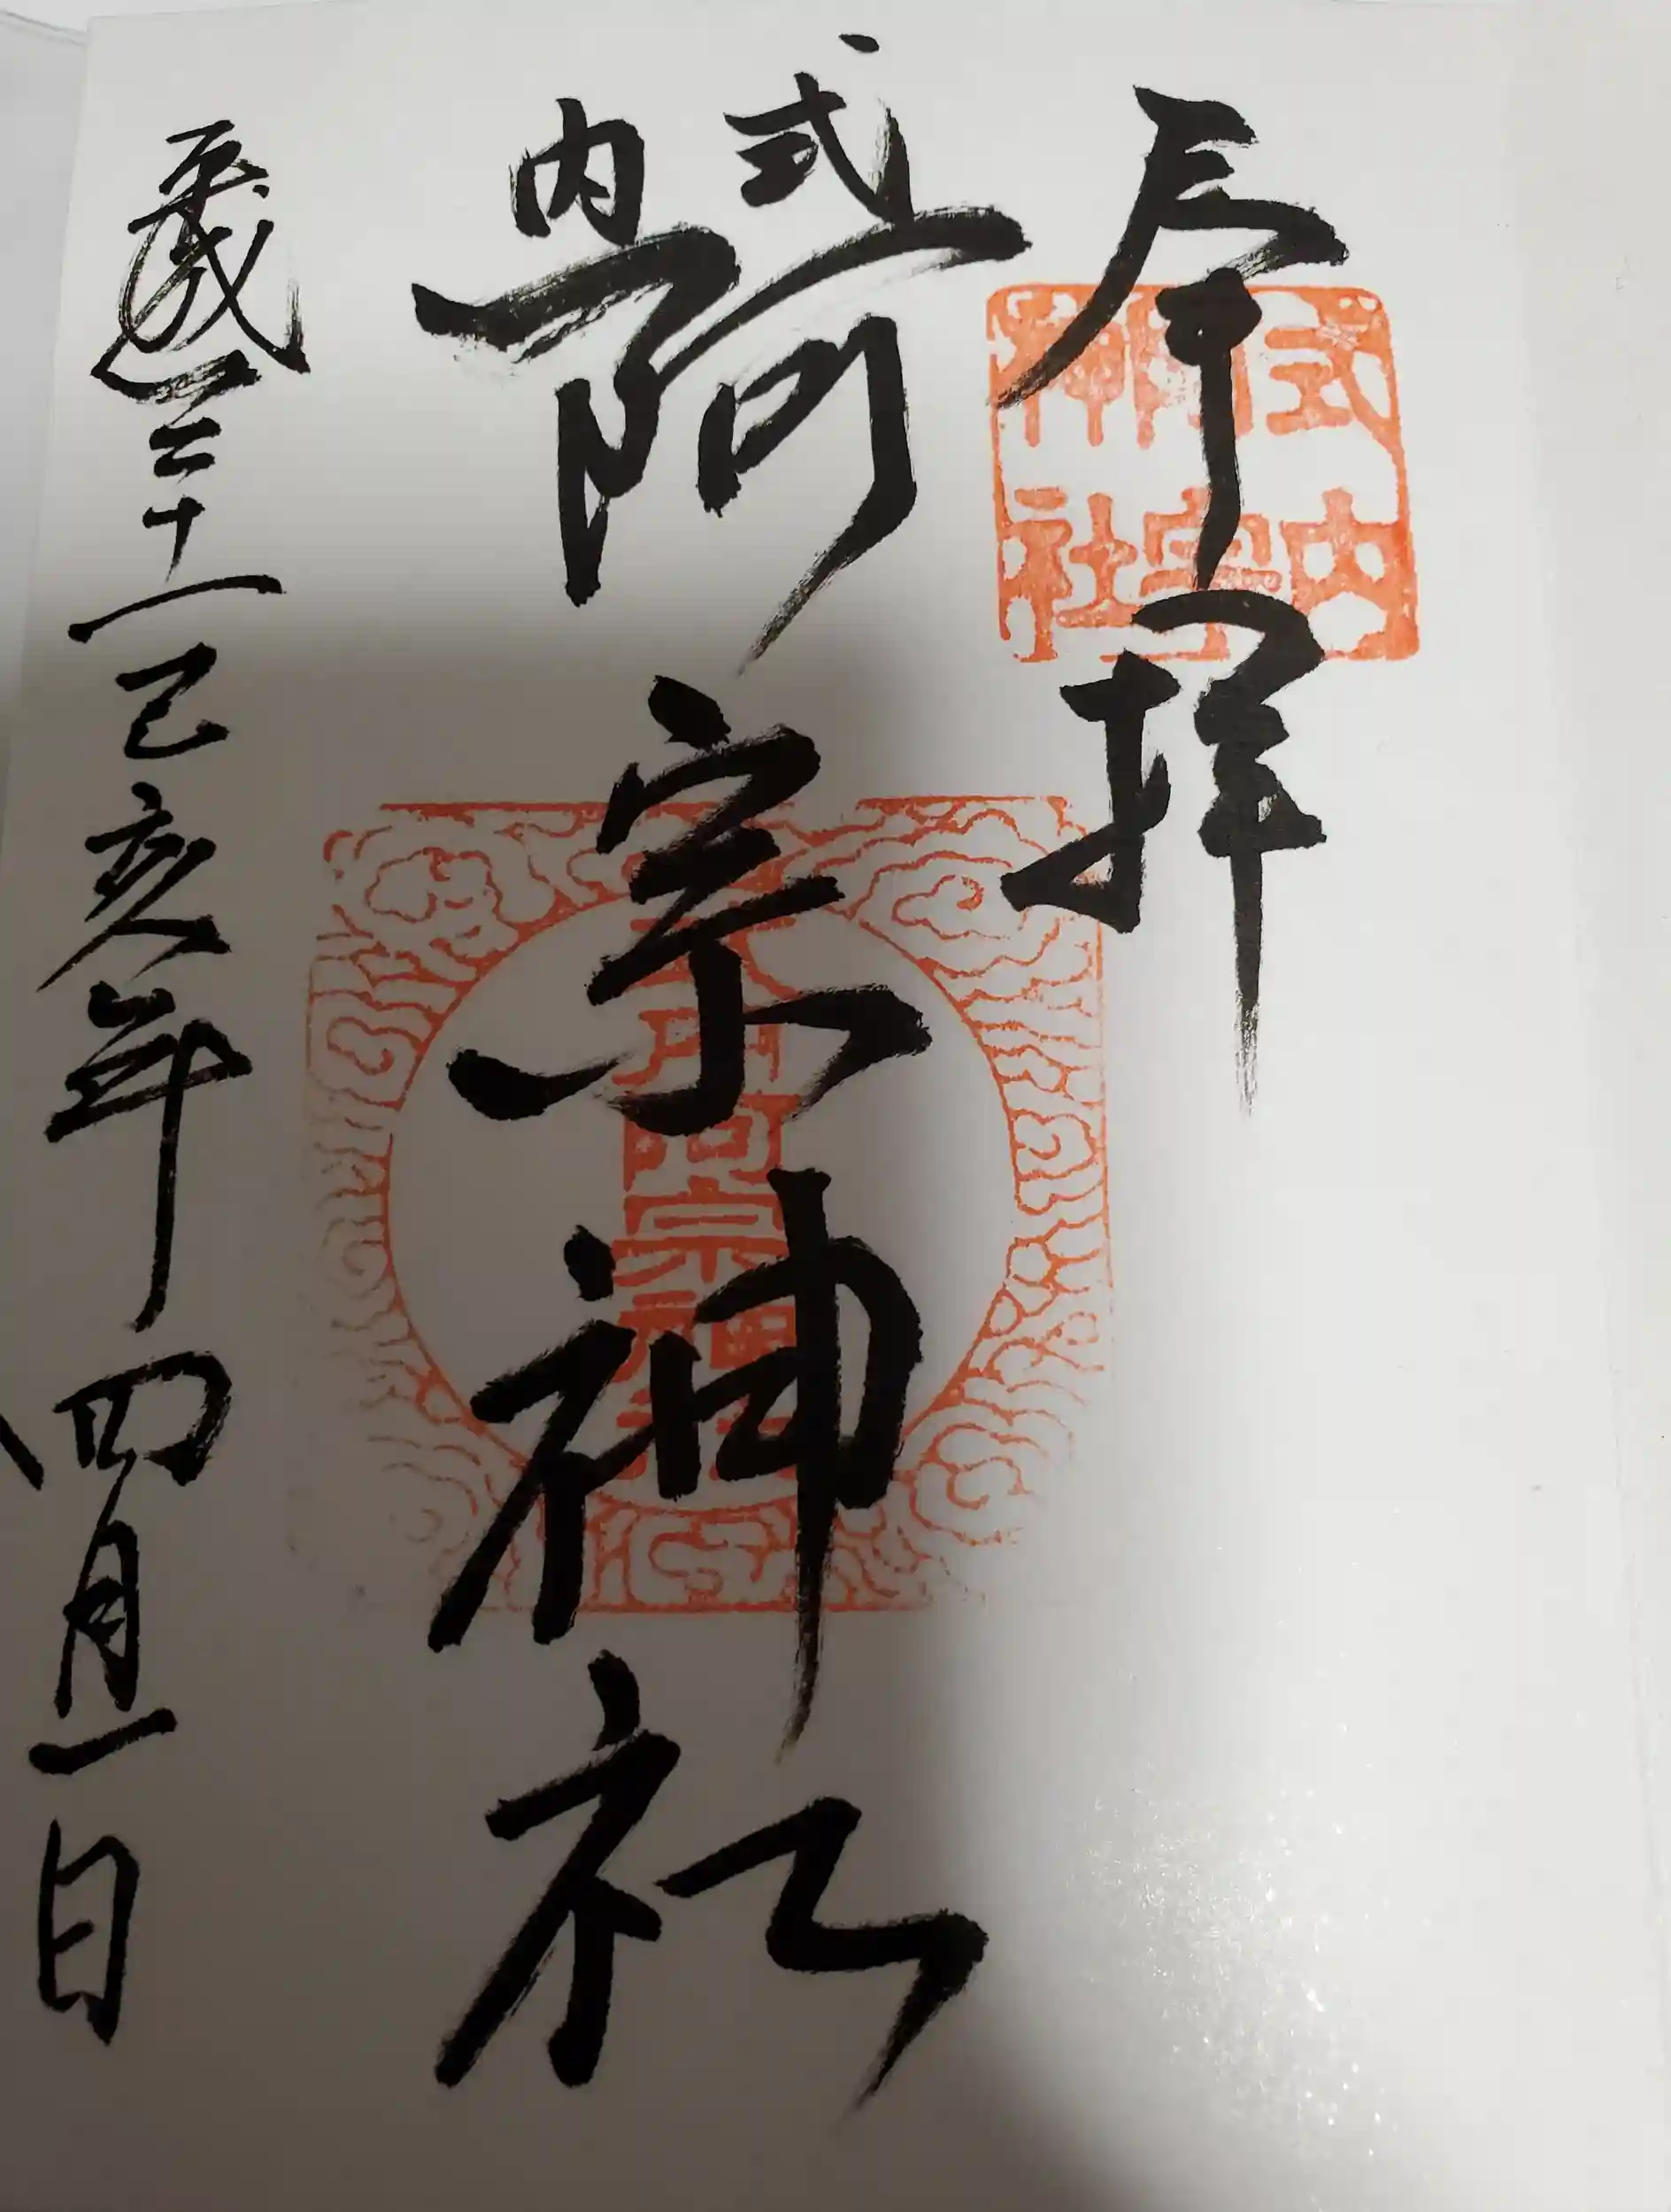 奉拝
式内
阿宗神社
平成三十一己亥年四月一日
式内
阿宗
神社
阿宗神社